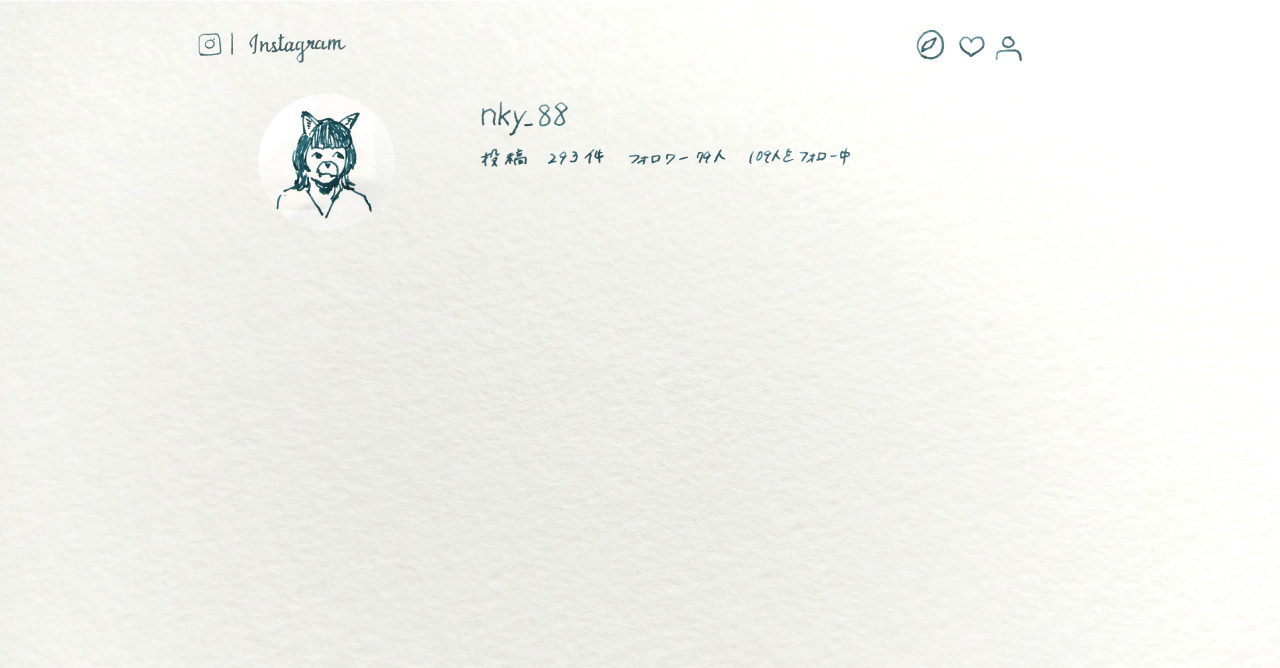 Instagram
nky_88
投稿 293件 フォロワー 79人 109人をフォロー中